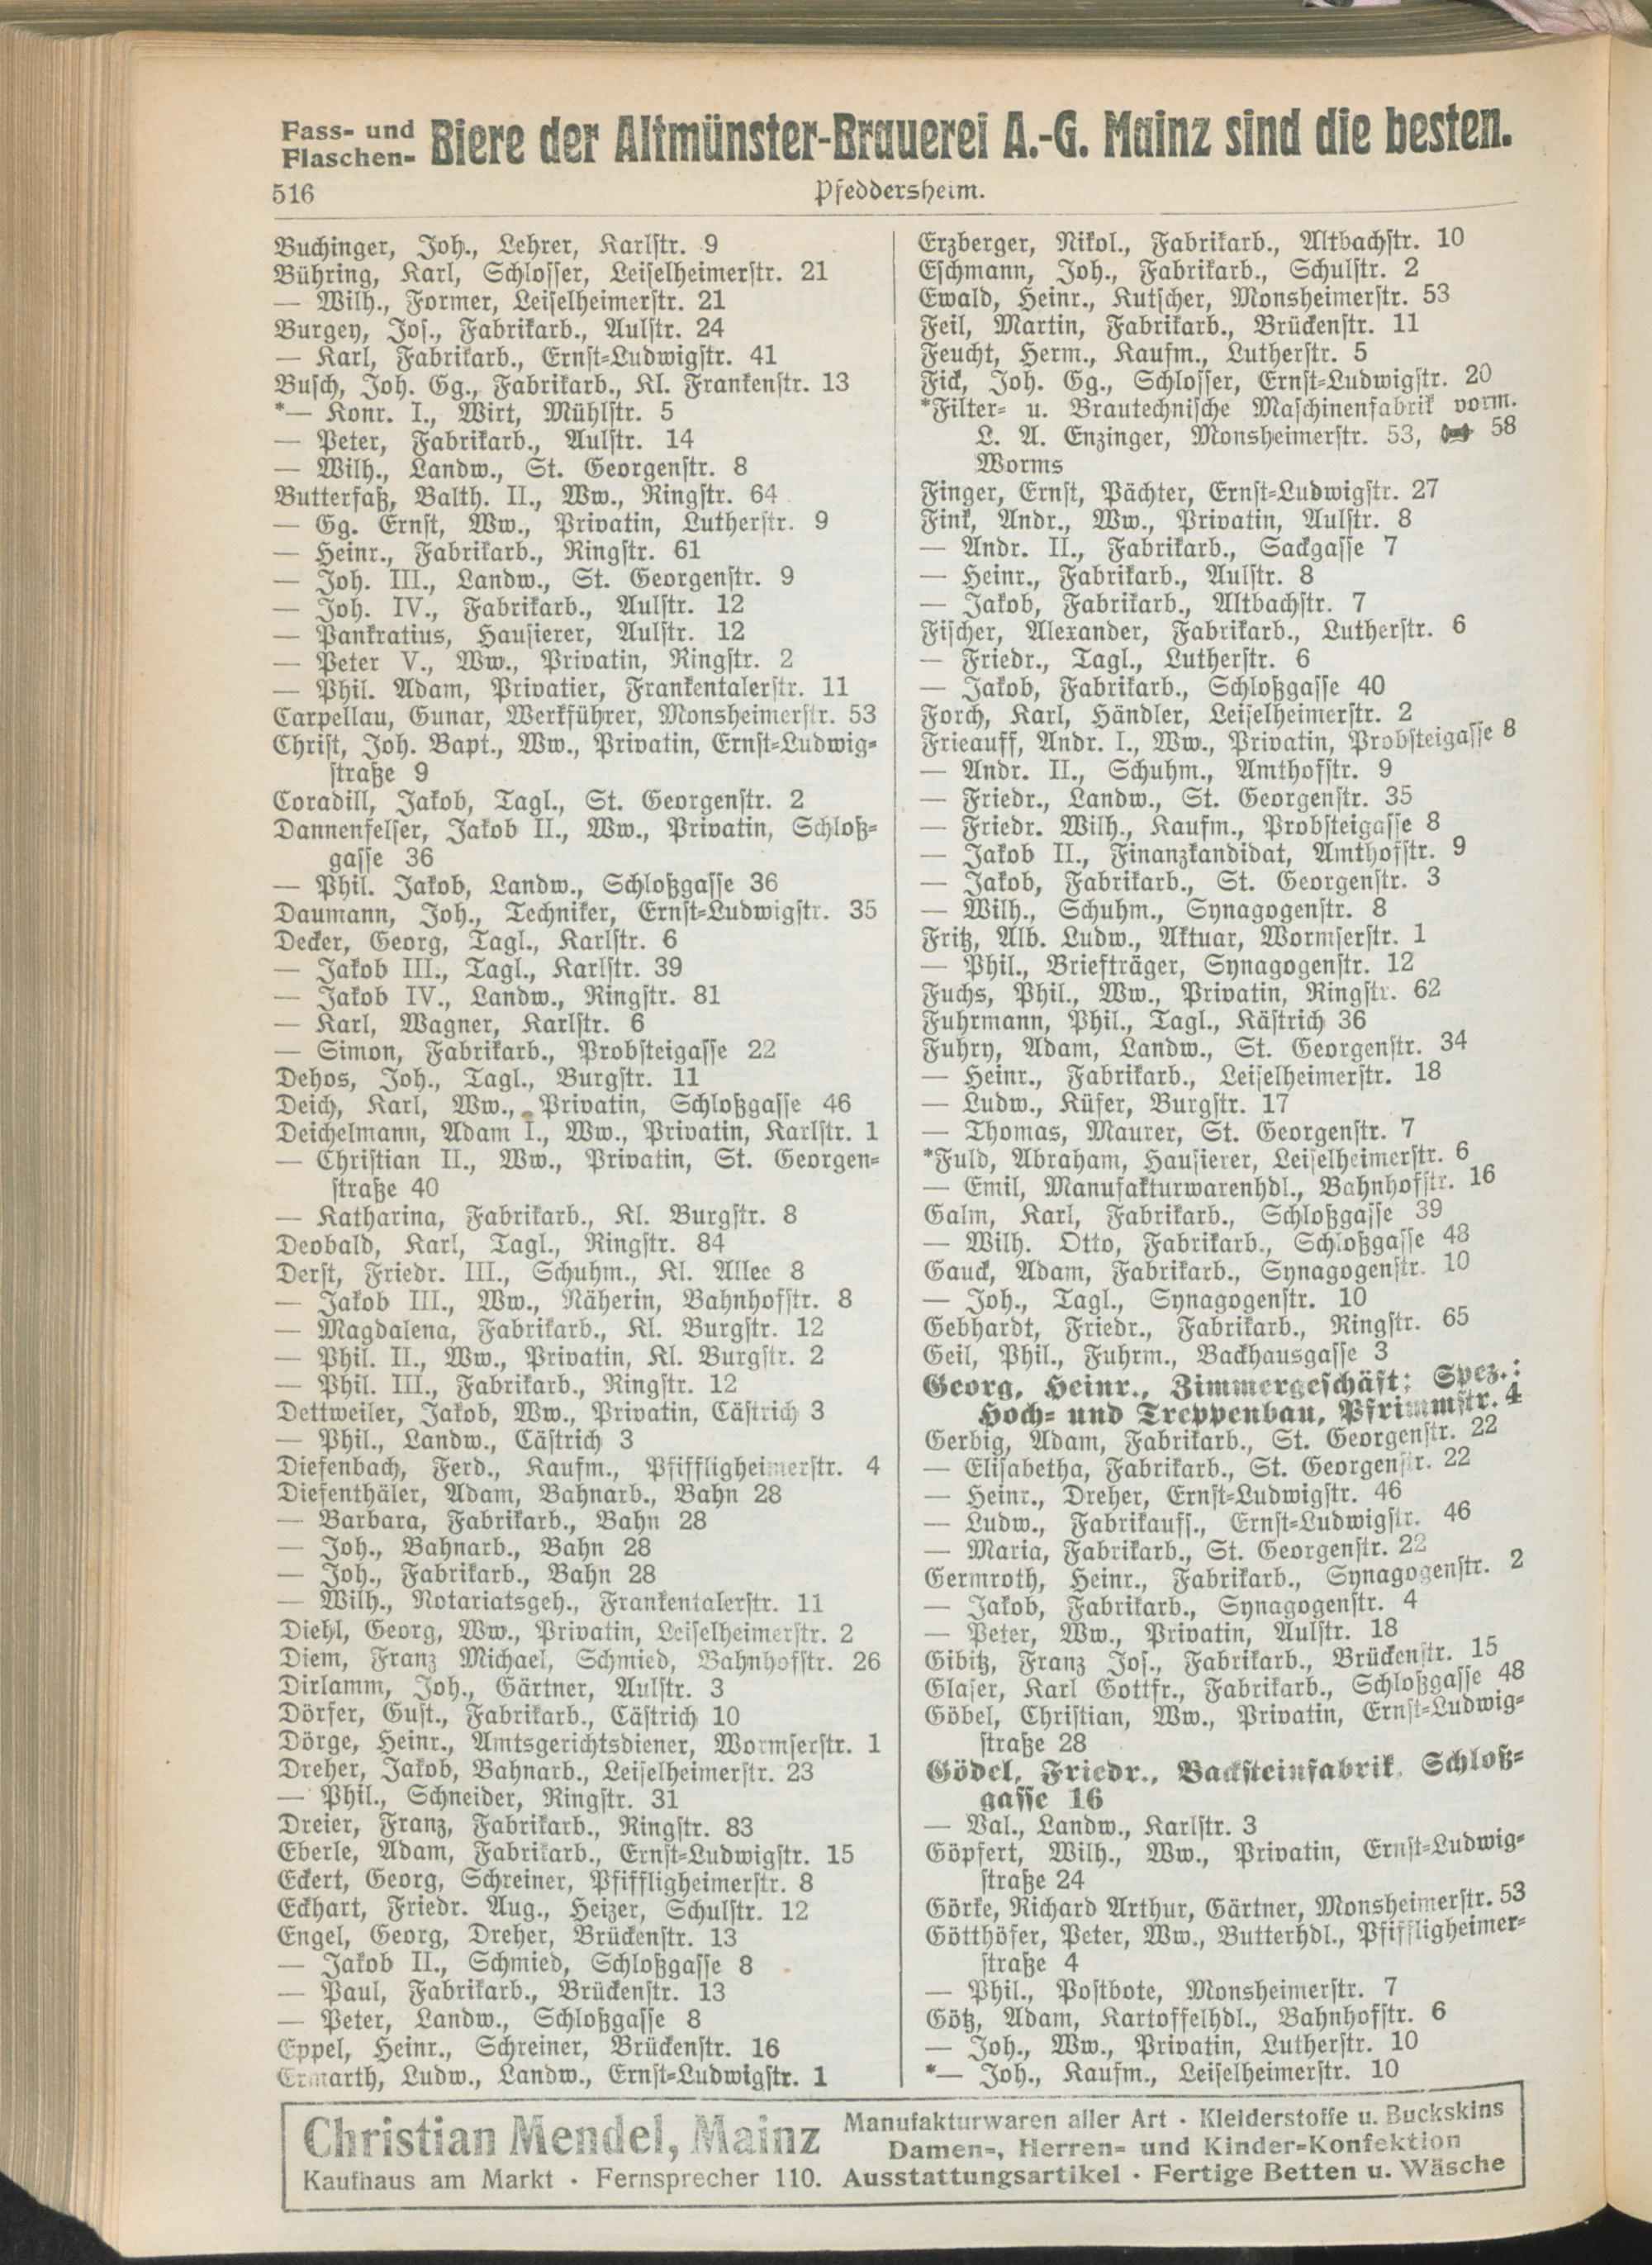 Fass- und
Flaschen- Biere der Altmünster-Brauerei A.-G. Mainz sind die besten.
516 Pfeddersheim.
Buchinger, Joh., Lehrer, Karlstr. 9
Bühring, Karl, Schlosser, Leiselheimerstr. 21
— Wilh., Former, Leiselheimerstr. 21
Burgey, Jos., Fabrikarb., Aulstr. 24
— Karl, Fabrikarb., Ernst-Ludwigstr. 41
Busch, Joh. Gg., Fabrikarb., Kl. Frankenstr. 13
*— Konr. I., Wirt, Mühlstr. 5
— Peter, Fabrikarb., Aulstr. 14
— Wilh., Landw., St. Georgenstr. 8
Butterfaß, Balth. II., Ww., Ringstr. 64
— Gg. Ernst, Ww., Privatin, Lutherstr. 9
— Heinr., Fabrikarb., Ringstr. 61
— Joh. III., Landw., St. Georgenstr. 9
— Joh. IV., Fabrikarb., Aulstr. 12
— Pankratius, Hausierer, Aulstr. 12
— Peter V., Ww., Privatin, Ringstr. 2
— Phil. Adam, Privatier, Frankentalerstr. 11
Carpellau, Gunar, Werkführer, Monsheimerstr. 53
Christ, Joh. Bapt., Ww., Privatin, Ernst-Ludwig-
straße 9
Coradill, Jakob, Tagl., St. Georgenstr. 2
Dannenfelser, Jakob II., Ww., Privatin, Schloß-
gasse 36
— Phil. Jakob, Landw., Schloßgasse 36
Daumann, Joh., Techniker, Ernst-Ludwigstr. 35
Decker, Georg, Tagl., Karlstr. 6
— Jakob III., Tagl., Karlstr. 39
— Jakob IV., Landw., Ringstr. 81
— Karl, Wagner, Karlstr. 6
— Simon, Fabrikarb., Probsteigasse 22
Dehos, Joh., Tagl., Burgstr. 11
Deich, Karl, Ww., Privatin, Schloßgasse 46
Deichelmann, Adam I., Ww., Privatin, Karlstr. 1
— Christian II., Ww., Privatin, St. Georgen-
straße 40
— Katharina, Fabrikarb., Kl. Burgstr. 8
Deobald, Karl, Tagl., Ringstr. 84
Derst, Friedr. III., Schuhm., Kl. Allee 8
— Jakob III., Ww., Näherin, Bahnhofstr. 8
— Magdalena, Fabrikarb., Kl. Burgstr. 12
— Phil. II., Ww., Privatin, Kl. Burgstr. 2
— Phil. III., Fabrikarb., Ringstr. 12
Dettweiler, Jakob, Ww., Privatin, Cästrich 3
— Phil., Landw., Cästrich 3
Diefenbach, Ferd., Kaufm., Pfiffligheimerstr. 4
Diefenthäler, Adam, Bahnarb., Bahn 28
— Barbara, Fabrikarb., Bahn 28
— Joh., Bahnarb., Bahn 28
— Joh., Fabrikarb., Bahn 28
— Wilh., Notariatsgeh., Frankentalerstr. 11
Diehl, Georg, Ww., Privatin, Leiselheimerstr. 2
Diem, Franz Michael, Schmied, Bahnhofstr. 26
Dirlamm, Joh., Gärtner, Aulstr. 3
Dörfer, Gust., Fabrikarb., Cästrich 10
Dörge, Heinr., Amtsgerichtsdiener, Wormserstr. 1
Dreher, Jakob, Bahnarb., Leiselheimerstr. 23
— Phil., Schneider, Ringstr. 31
Dreier, Franz, Fabrikarb., Ringstr. 83
Eberle, Adam, Fabrikarb., Ernst-Ludwigstr. 15
Eckert, Georg, Schreiner, Pfiffligheimerstr. 8
Eckhart, Friedr. Aug., Heizer, Schulstr. 12
Engel, Georg, Dreher, Brückenstr. 13
— Jakob II., Schmied, Schloßgasse 8
— Paul, Fabrikarb., Brückenstr. 13
— Peter, Landw., Schloßgasse 8
Eppel, Heinr., Schreiner, Brückenstr. 16
Ermarth, Ludw., Landw., Ernst-Ludwigstr. 1
Erzberger, Nikol., Fabrikarb., Altbachstr. 10
Eschmann, Joh., Fabrikarb., Schulstr. 2
Ewald, Heinr., Kutscher, Monsheimerstr. 53
Feil, Martin, Fabrikarb., Brückenstr. 11
Feucht, Herm., Kaufm., Lutherstr. 5
Fick, Joh. Gg., Schlosser, Ernst-Ludwigstr. 20
*Filter- u. Brautechnische Maschinenfabrik vorm.
L. A. Enzinger, Monsheimerstr. 53, 58
Worms
Finger, Ernst, Pächter, Ernst-Ludwigstr. 27
Fink, Andr., Ww., Privatin, Aulstr. 8
— Andr. II., Fabrikarb., Sackgasse 7
— Heinr., Fabrikarb., Aulstr. 8
— Jakob, Fabrikarb., Altbachstr. 7
Fischer, Alexander, Fabrikarb., Lutherstr. 6
— Friedr., Tagl., Lutherstr. 6
— Jakob, Fabrikarb., Schloßgasse 40
Forch, Karl, Händler, Leiselheimerstr. 2
Frieauff, Andr. I., Ww., Privatin, Probsteigasse 8
— Andr. II., Schuhm., Amthofstr. 9
— Friedr., Landw., St. Georgenstr. 35
— Friedr. Wilh., Kaufm., Probsteigasse 8
— Jakob II., Finanzkandidat, Amthofstr. 9
— Jakob, Fabrikarb., St. Georgenstr. 3
— Wilh., Schuhm., Synagogenstr. 8
Fritz, Alb. Ludw., Aktuar, Wormserstr. 1
— Phil., Briefträger, Synagogenstr. 12
Fuchs, Phil., Ww., Privatin, Ringstr. 62
Fuhrmann, Phil., Tagl., Kästrich 36
Fuhry, Adam, Landw., St. Georgenstr. 34
— Heinr., Fabrikarb., Leiselheimerstr. 18
— Ludw., Küfer, Burgstr. 17
— Thomas, Maurer, St. Georgenstr. 7
*Fuld, Abraham, Hausierer, Leiselheimerstr. 6
— Emil, Manufakturwarenhdl., Bahnhofstr. 16
Galm, Karl, Fabrikarb., Schloßgasse 39
— Wilh. Otto, Fabrikarb., Schloßgasse 48
Gauck, Adam, Fabrikarb., Synagogenstr. 10
— Joh., Tagl., Synagogenstr. 10
Gebhardt, Friedr., Fabrikarb., Ringstr. 65
Geil, Phil., Fuhrm., Backhausgasse 3
Georg, Heinr., Zimmergeschäft; Spez.:
Hoch- und Treppenbau, Pfrimmstr. 4
Gerbig, Adam, Fabrikarb., St. Georgenstr. 22
— Elisabetha, Fabrikarb., St. Georgenstr. 22
— Heinr., Dreher, Ernst-Ludwigstr. 46
— Ludw., Fabrikaufs., Ernst-Ludwigstr. 46
— Maria, Fabrikarb., St. Georgenstr. 22
Germroth, Heinr., Fabrikarb., Synagogenstr. 2
— Jakob, Fabrikarb., Synagogenstr. 4
— Peter, Ww., Privatin, Aulstr. 18
Gibitz, Franz Jos., Fabrikarb., Brückenstr. 15
Glaser, Karl Gottfr., Fabrikarb., Schloßgasse 48
Göbel, Christian, Ww., Privatin, Ernst-Ludwig-
straße 28
Gödel, Friedr., Backsteinfabrik, Schloß-
gasse 16
— Val., Landw., Karlstr. 3
Göpfert, Wilh., Ww., Privatin, Ernst-Ludwig-
straße 24
Görke, Richard Arthur, Gärtner, Monsheimerstr. 53
Götthöfer, Peter, Ww., Butterhdl., Pfiffligheimer-
straße 4
— Phil., Postbote, Monsheimerstr. 7
Götz, Adam, Kartoffelhdl., Bahnhofstr. 6
— Joh., Ww., Privatin, Lutherstr. 10
*— Joh., Kaufm., Leiselheimerstr. 10
Christian Mendel, Mainz
Kaufhaus am Markt · Fernsprecher 110.
Manufakturwaren aller Art · Kleiderstoffe u. Buckskins
Damen-, Herren- und Kinder-Konfektion
Ausstattungsartikel · Fertige Betten u. Wäsche